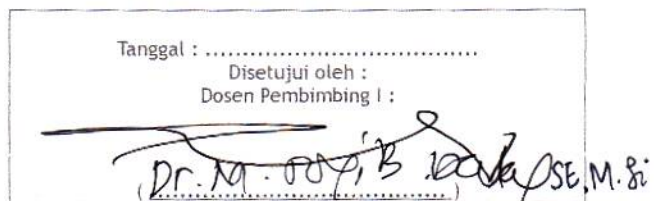 Tanggal : ....................................
Disetujui oleh :
Dosen Pembimbing I :
(Dr. M. B. SE, M.Si)